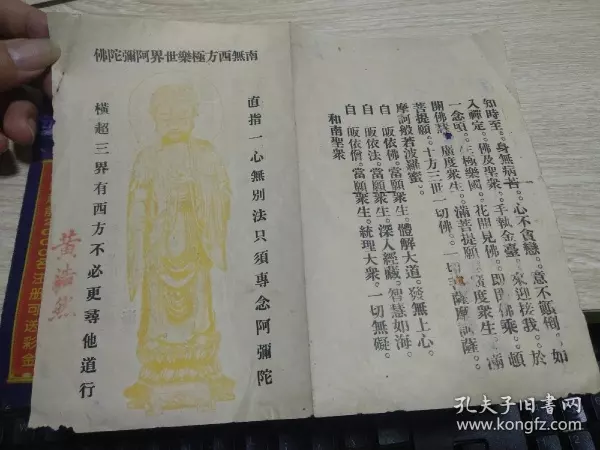 知時至。身無病苦。心不貪戀。意不顛倒。如
入禪定。佛及聖衆。手執金臺。來迎接我。於
一念頃。生極樂國。花開見佛。即聞佛乘。頓
開佛慧。廣度衆生。滿菩提願。廣度衆生。滿
菩提願。十方三世一切佛。一切菩薩摩訶薩。
摩訶般若波羅蜜。
自皈依佛。當願衆生。體解大道。發無上心。
自皈依法。當願衆生。深入經藏。智慧如海。
自皈依僧。當願衆生。統理大衆。一切無礙。
和南聖衆
南無西方極樂世界阿彌陀佛
直指一心無別法只須專念阿彌陀
橫超三界有西方不必更尋他道行
黃浩然
名注册可送彩金
孔夫子旧书网
www.kongfz.com